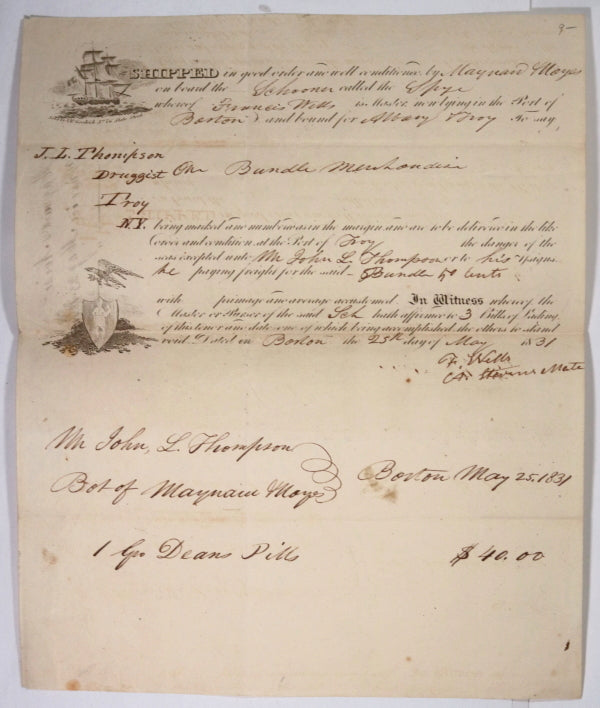 9-
SHIPPED in good order and well conditioned by Maynard & Noyes
on board the Schooner called the Spye
whereof Francis Wells is Master now lying in the Port of
Boston and bound for Albany & Troy To say,
J. L. Thompson
Druggist One Bundle Merchandise
Troy
N.Y. being marked and numbered as in the margin and are to be delivered in the like
order and condition at the Port of Troy the danger of the
seas excepted unto Mr John L. Thompson or to his assigns
he paying freight for the said Bundle 50 cents
with primage and average accustomed In Witness whereof the
Master or Purser of the said Sch hath affirmed to 3 Bills of Lading
of this tenor and date one of which being accomplished the others to stand
void. Dated in Boston the 25th day of May 1831
F. Wells
Stevens Mate
Mr John, L. Thompson
Boston May 25. 1831
Bot of Maynard & Noyes
1 Gro Deans Pills $ 40.00